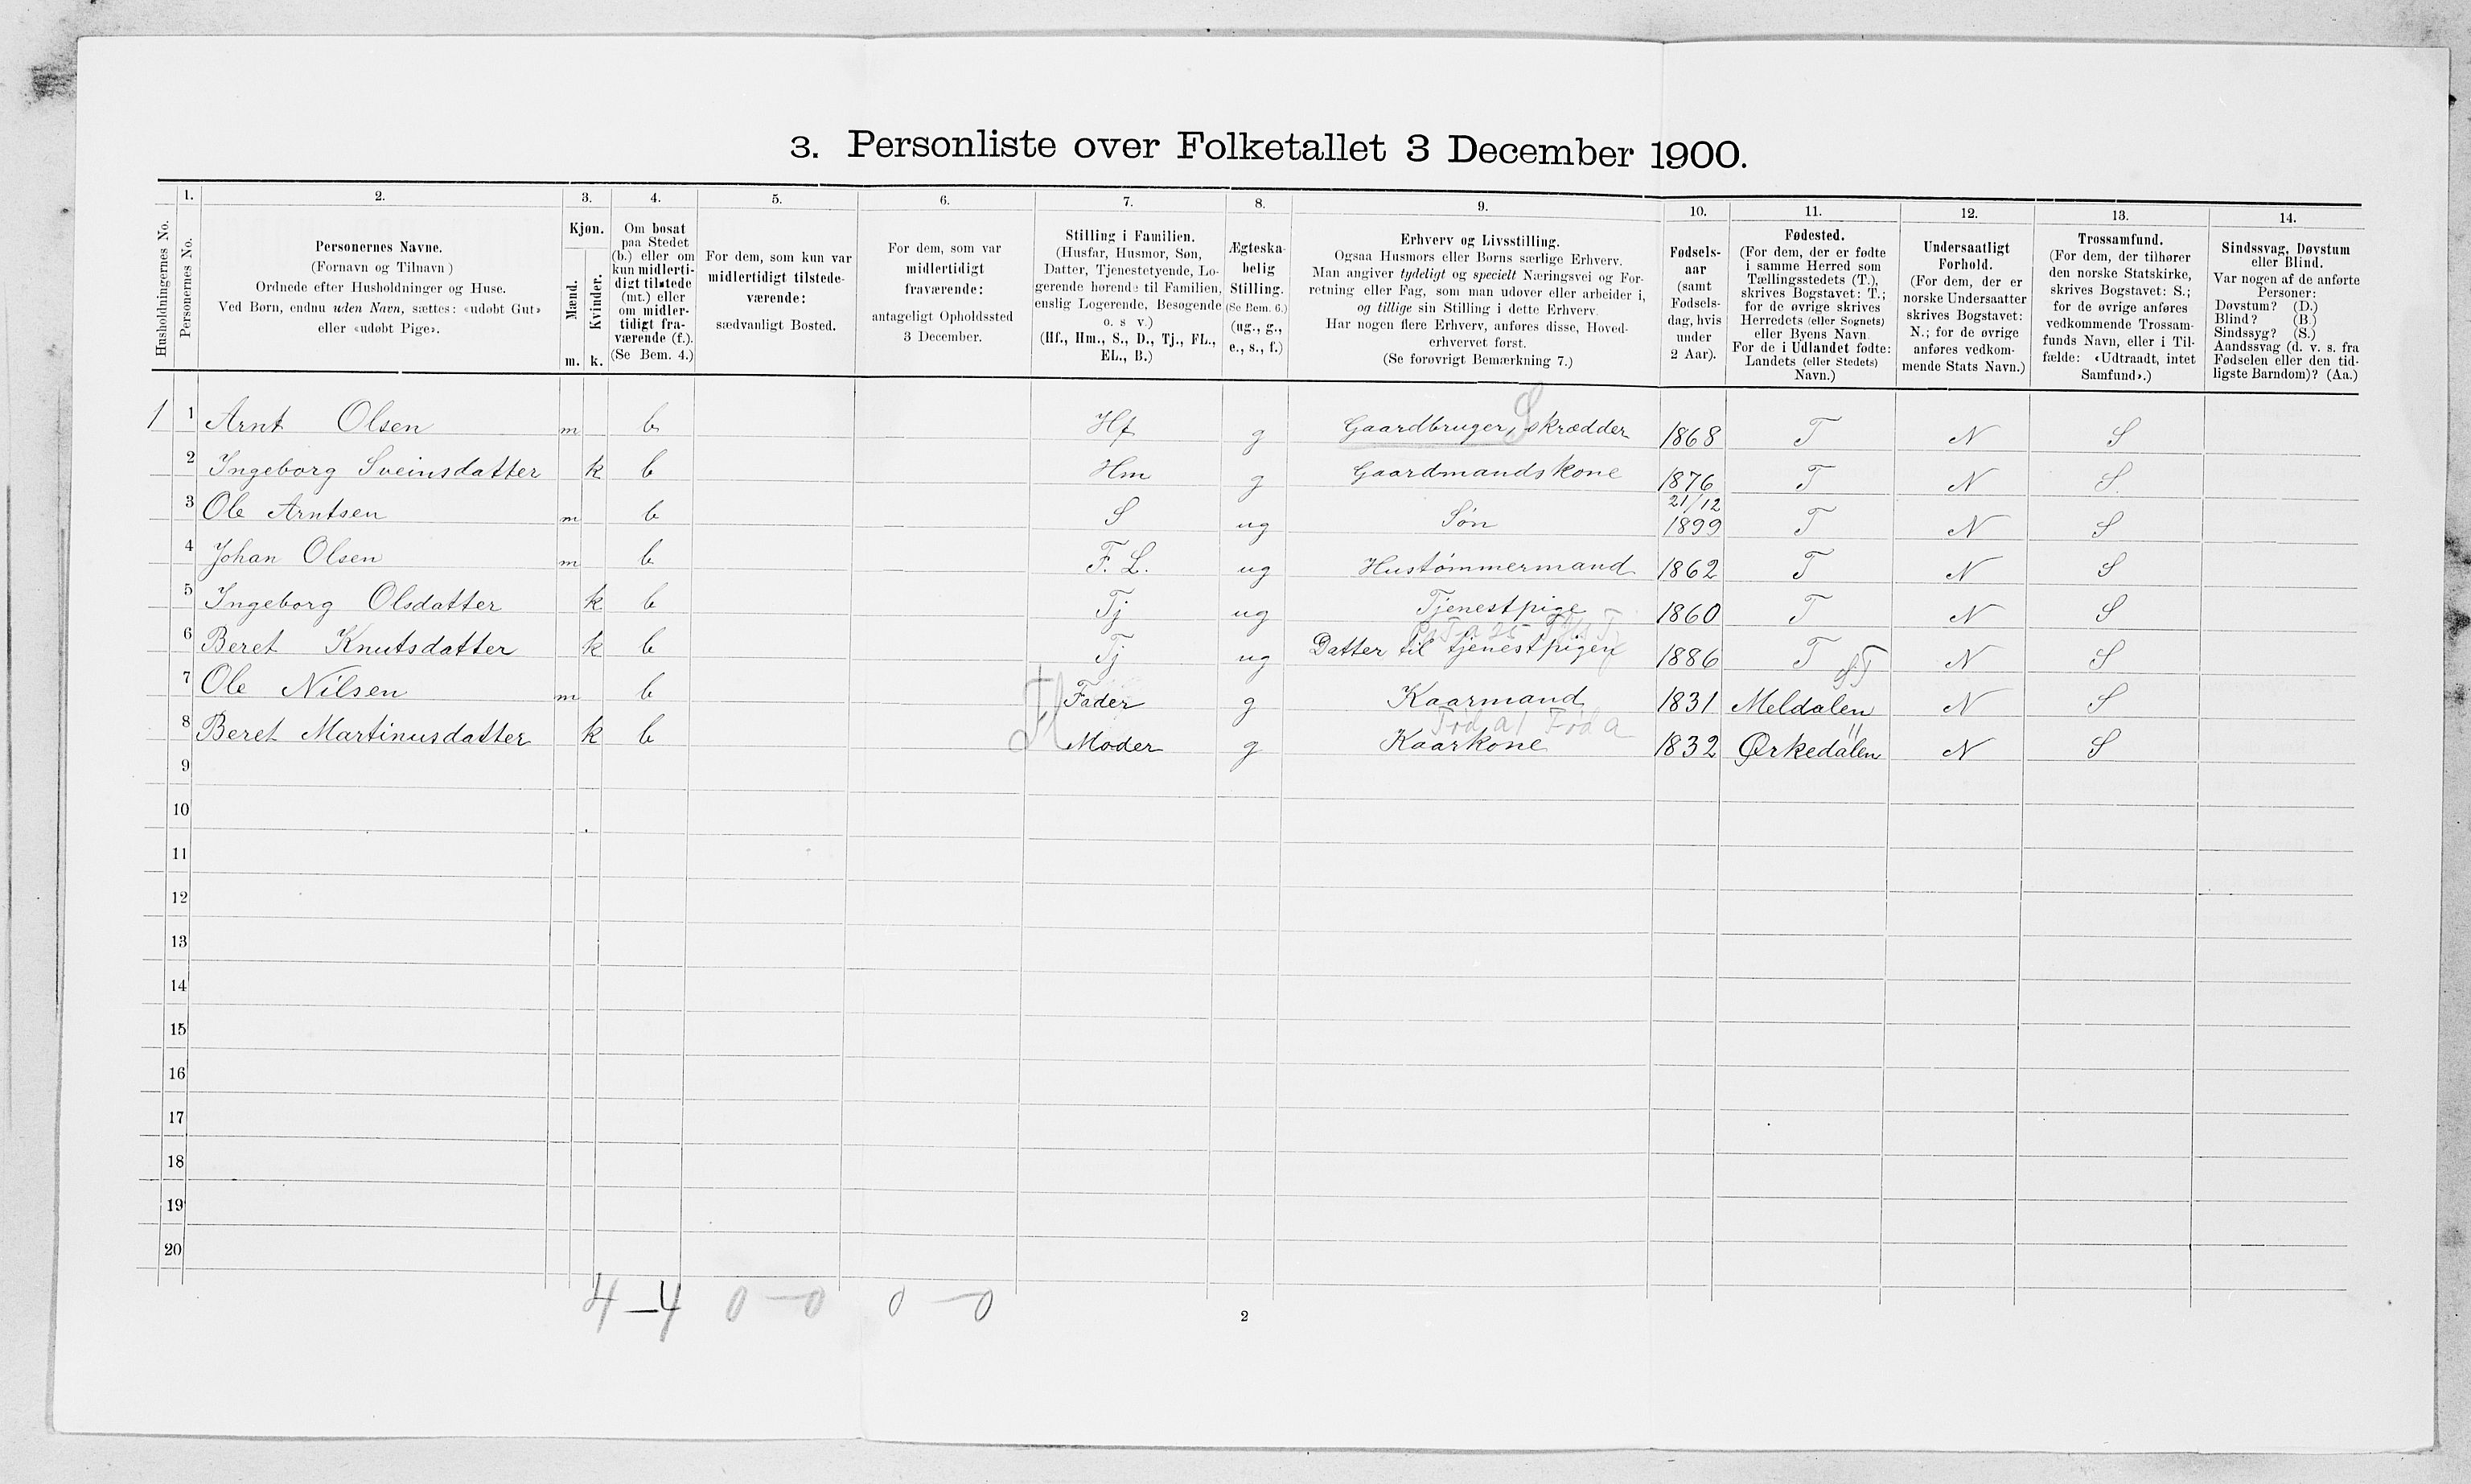 3. Personliste over Folketallet 3 December 1900.
1. 2. 3. 4. 5. 6. 7. 8. 9. 10. 11. 12. 13. 14.
Husholdningernes No.
Personernes No.
Personernes Navne.
(Fornavn og Tilnavn)
Ordnede efter Husholdninger og Huse.
Ved Børn, endnu uden Navn, sættes: «udøbt Gut»
eller «udøbt Pige».
Kjøn.
Mænd.
Kvinder.
m. k.
Om bosat
paa Stedet
(b.) eller om
kun midlerti-
digt tilstede
(mt.) eller
om midler-
tidigt fra-
værende (f.).
(Se Bem. 4.)
For dem, som kun var
midlertidigt tilstede-
værende:
sædvanligt Bosted.
For dem, som var
midlertidigt
fraværende:
antageligt Opholdssted
3 December.
Stilling i Familien.
(Husfar, Husmor, Søn,
Datter, Tjenestetyende, Lo-
gerende hørende til Familien,
enslig Logerende, Besøgende
o. s v.)
(Hf., Hm., S., D., Tj., FL.,
EL., B.)
Ægteska-
belig
Stilling.
(Se Bem. 6.)
(ug., g.,
e., s., f.)
Erhverv og Livsstilling.
Ogsaa Husmors eller Børns særlige Erhverv.
Man angiver tydeligt og specielt Næringsvei og For-
retning eller Fag, som man udøver eller arbeider i,
og tillige sin Stilling i dette Erhverv.
Har nogen flere Erhverv, anføres disse, Hoved-
erhvervet først.
(Se forøvrigt Bemærkning 7.)
Fødsels-
aar
(samt
Fødsels-
dag, hvis
under
2 Aar).
Fødested.
(For dem, der er fødte
i samme Herred som
Tællingsstedets (T.),
skrives Bogstavet: T.;
for de øvrige skrives
Herredets (eller Sognets)
eller Byens Navn.
For de i Udlandet fødte:
Landets (eller Stedets)
Navn.)
Undersaatligt
Forhold.
(For dem, der er
norske Undersaatter
skrives Bogstavet:
N.; for de øvrige
anføres vedkom-
mende Stats Navn.)
Trossamfund.
(For dem, der tilhører
den norske Statskirke,
skrives Bogstavet: S.;
for de øvrige anføres
vedkommende Trossam-
funds Navn, eller i Til-
fælde: «Udtraadt, intet
Samfund».)
Sindssvag, Døvstum
eller Blind.
Var nogen af de anførte
Personer:
Døvstum? (D.)
Blind? (B.)
Sindssyg? (S.)
Aandssvag (d. v. s. fra
Fødselen eller den tid-
ligste Barndom)? (Aa.)
1 1 Arnt Olsen m b Hf g Gaardbruger, Skrædder 1868 T N S
2 Ingeborg Sveinsdatter k b Hm g Gaardmandskone 1876 T N S
21/12
3 Ole Arntsen m b S ug Søn 1899 T N S
4 Johan Olsen m b F. L. ug Hustømmermand 1862 T N S
5 Ingeborg Olsdatter k b Tj ug Tjenestpige 1860 T N S
6 Beret Knutsdatter k b Tj ug Datter til tjenestpigen 1886 T N S
7 Ole Nilsen m b Fl Fader g Kaarmand 1831 Meldalen N S
8 Beret Martinusdatter k b Moder g Kaarkone 1832 Ørkedalen N S
9
10
11
12
13
14
15
16
17
18
19
20
4 — 4 0 — 0 0 — 0
2